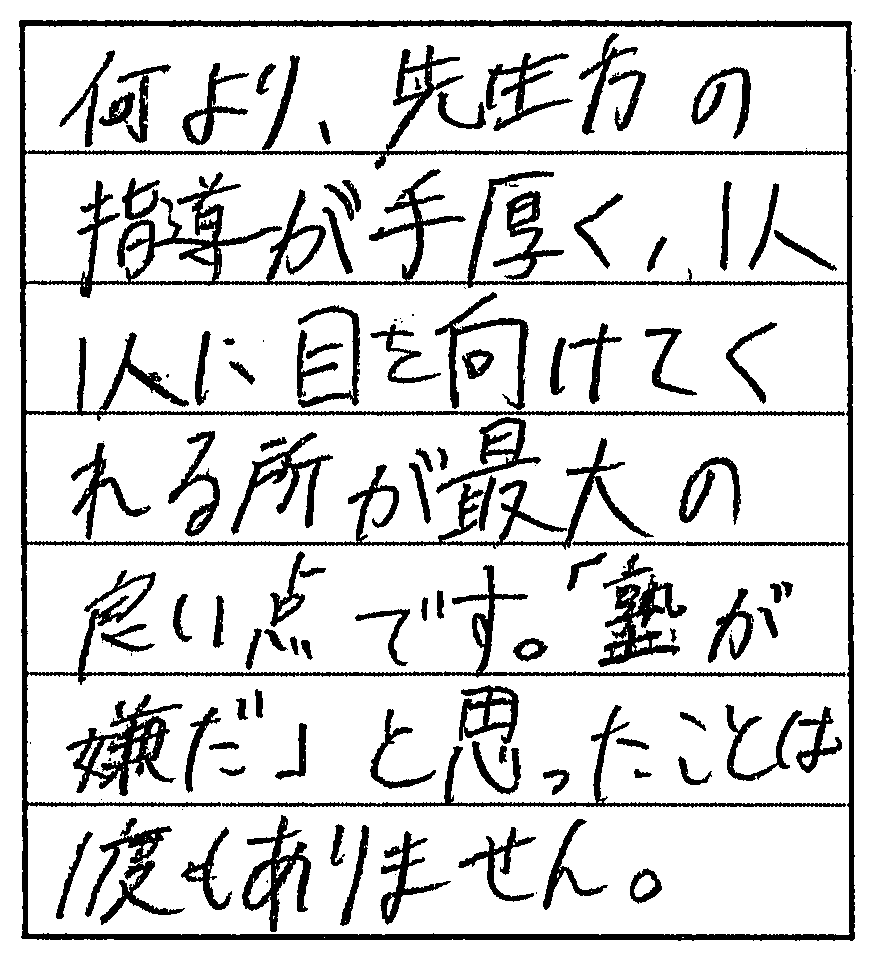 何より、先生方の
指導が手厚く、1人
1人に目を向けてく
れる所が最大の
良い点です。「塾が
嫌だ」と思ったことは
1度もありません。